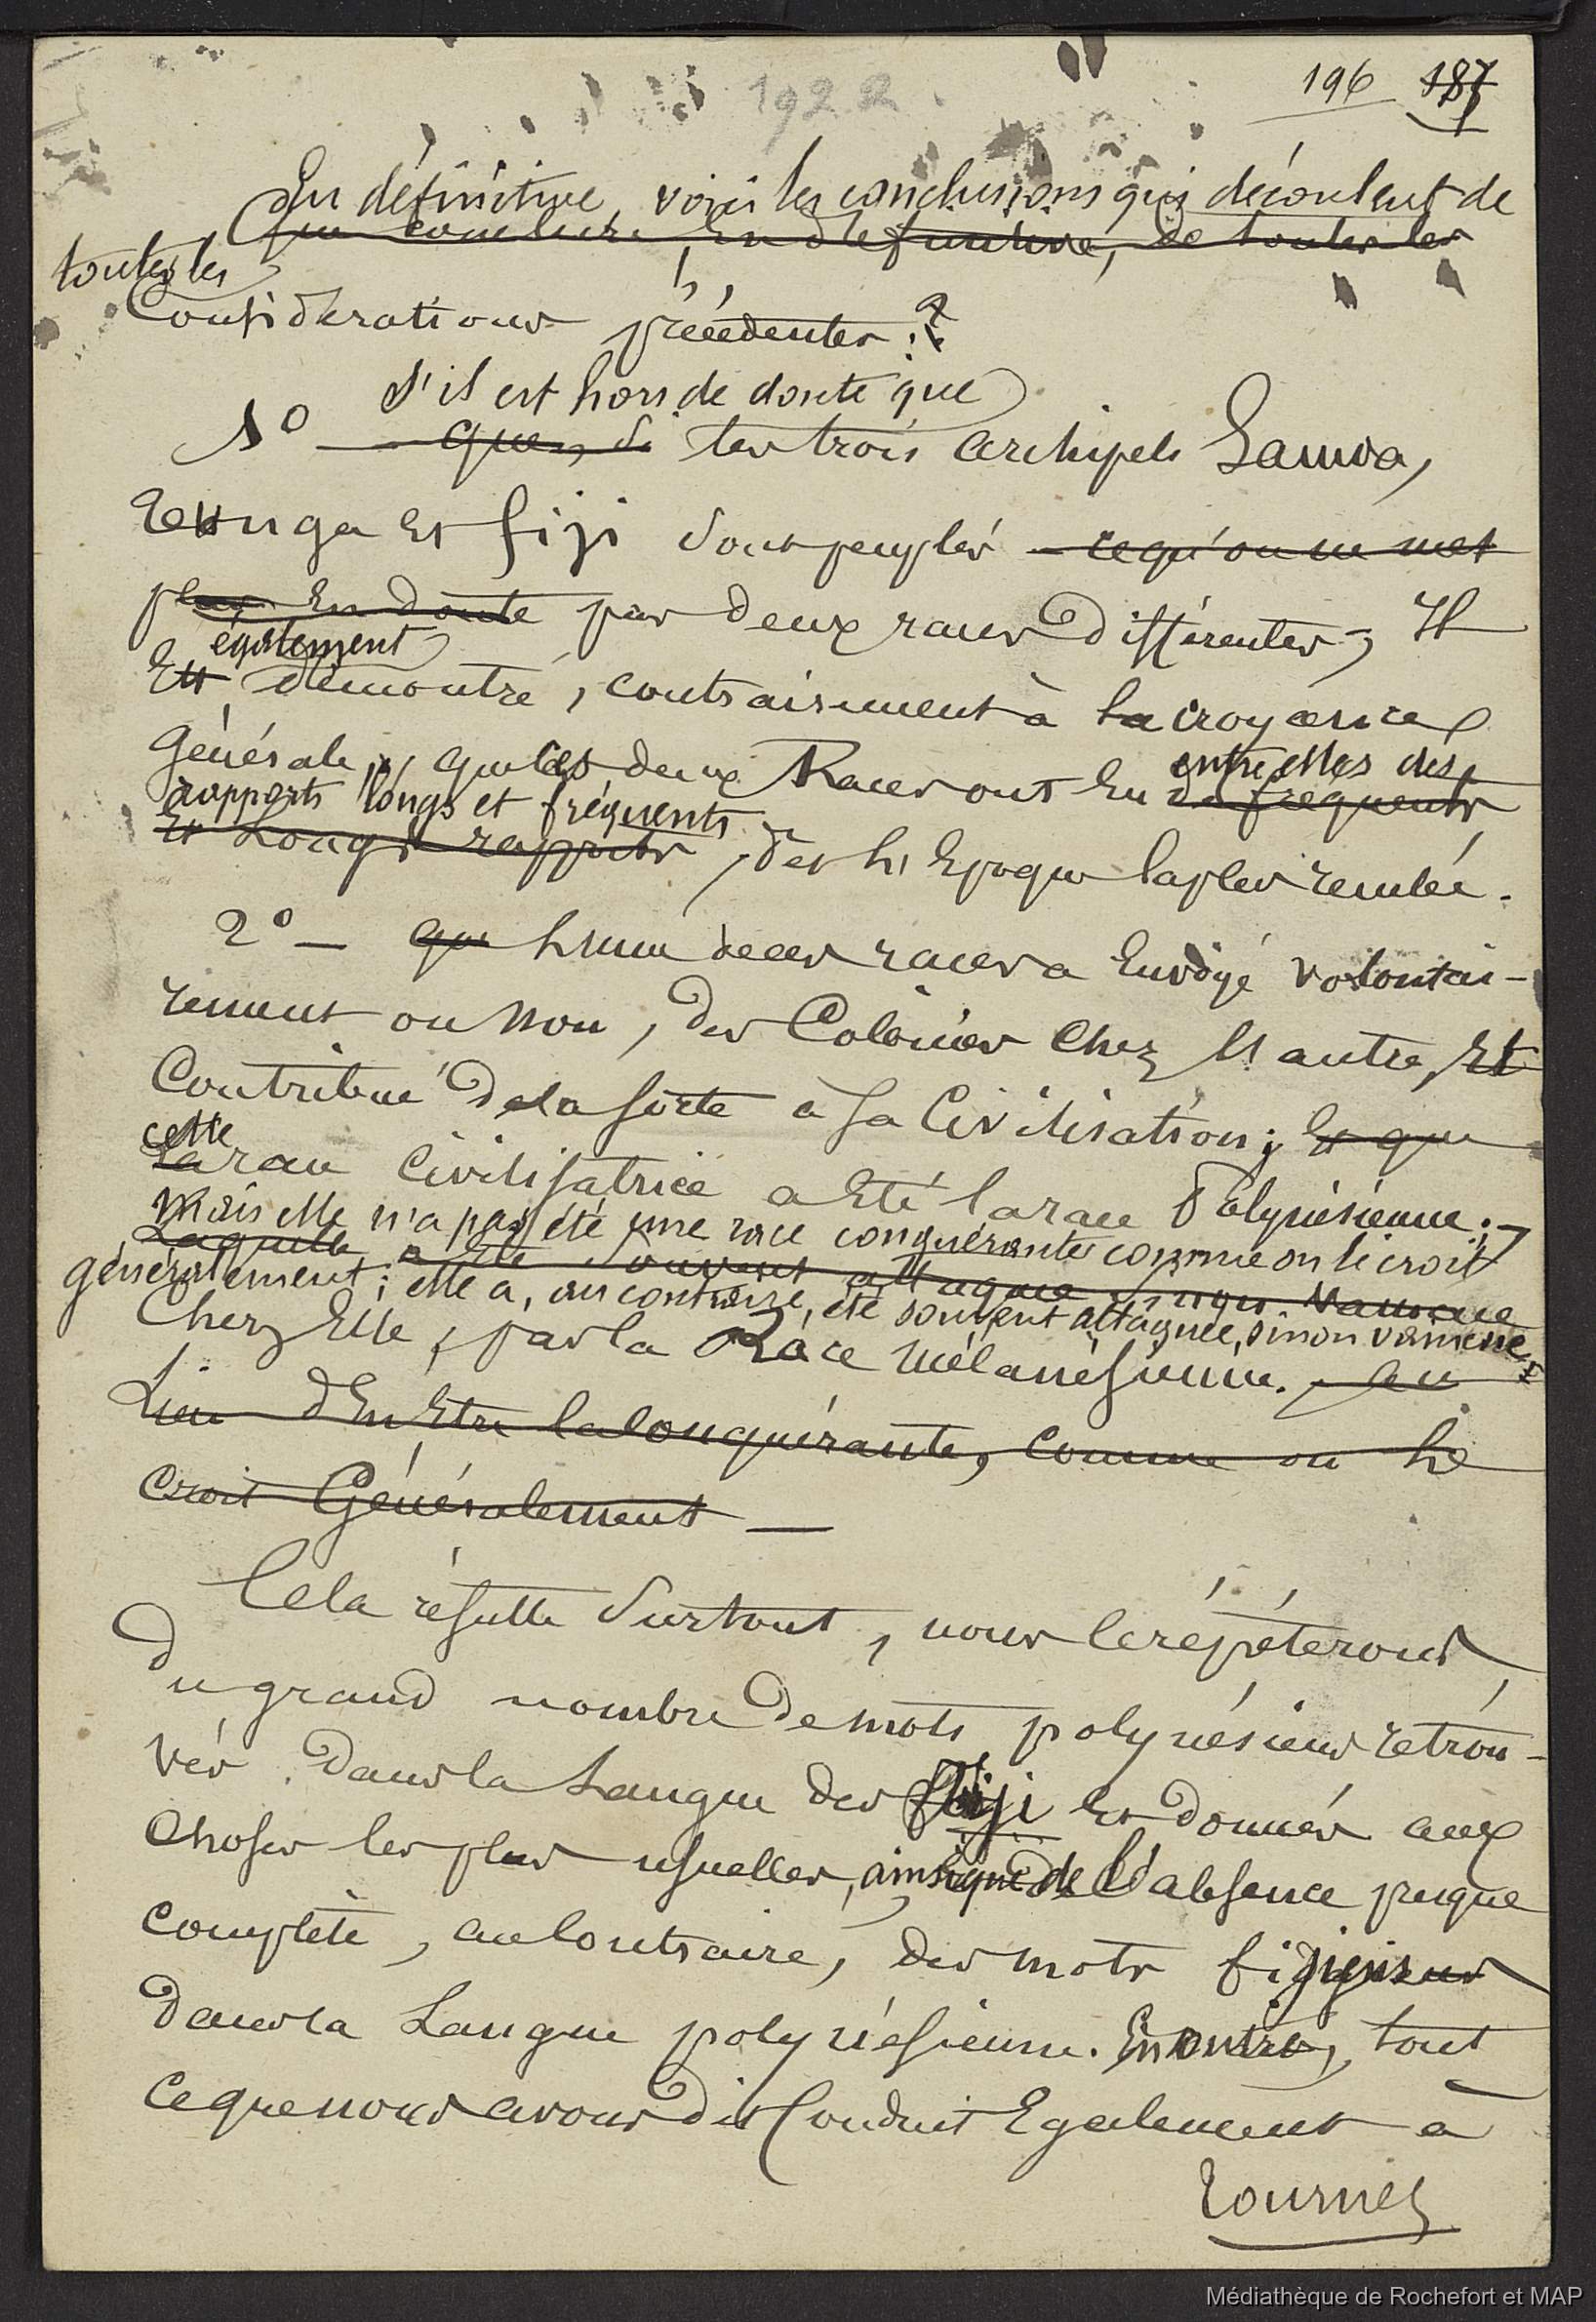 1922
196 187
En définitive, voici les conclusions qui découlent de
Que conclure, en définitive, de toutes les
toutes les
Considérations précédentes :?
S'il est hors de doute que
1º — que, si les trois archipels Samoa,
Tonga et Fiji sont peuplés — ce qu'on ne met
plus en doute par deux races différentes, Il
également
Est démontré, contrairement à la croyance
Générale, que les deux Races ont eu de fréquents
entre elles des
rapports longs et fréquents
et Longs rapports, dès l'Epoque la plus reculée.
2º — que l'une de ces races a Envoyé volontai-
rement ou non, des Colonies chez l'autre, Et
Contribué de la sorte à sa Civilisation; et que
cette
La race Civilisatrice a Eté la race Polynésienne;
Mais elle n'a pas été une race conquérante comme on le croit
Laquelle a été souvent attaquée, sinon vaincue
généralement; elle a, au contraire, été souvent attaquée, sinon vaincue
Chez Elle, par la Race Mélanésienne. au
Lieu d'En Etre la Conquérante, comme on le
croit Généralement —
Cela résulte Surtout, nous le répéterons,
Du grand nombre de mots polynésiens retrou-
vés dans la Langue des Fiji et donnés aux
Choses les plus usuelles, ainsi que de l'absence presque
complète, au Contraire, des mots fijiens
Dans la Langue polynésienne. En outre, tout
ce que nous avons dit Conduit Egalement à
Tournez
Médiathèque de Rochefort et MAP